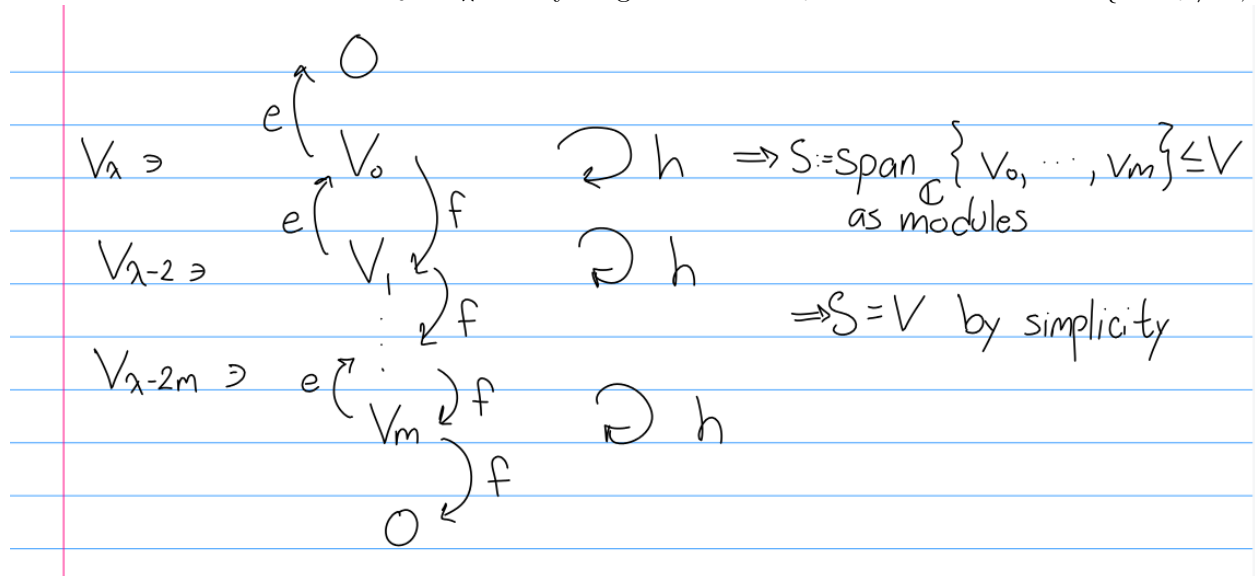 O
e
V_λ ∋ V_0 h ⟹ S:=span_ℂ { V_0, ⋯, V_m } ≤ V
e f as modules
V_{λ-2} ∋ V_1 h
f ⟹ S = V by simplicity
V_{λ-2m} ∋ e f
V_m h
f
O